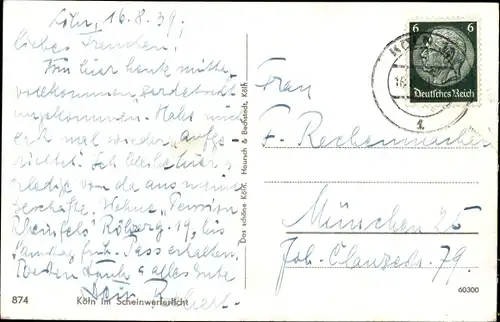 Köln, 16.8.39.
liebes Frenchen!
Bin hier heute mittag
vollkommen
ankommen. Habe mich
erst mal wieder "aufge
richtet". Ich bleibe hier
erledige von da aus meine
Geschäfte. Wohne "Pension
Rheinfels" 19, bis
erhalten.
Besten Gruß & alles Gute
Dein Robert.
874
Köln im Scheinwerferlicht
Das schöne Köln. Hoursch & Bechstedt, Köln
6 6
Deutsches Reich
KÖLN
Frau
F. Rechenmacher
München 25
Joh. Clanzestr. 79.
60300